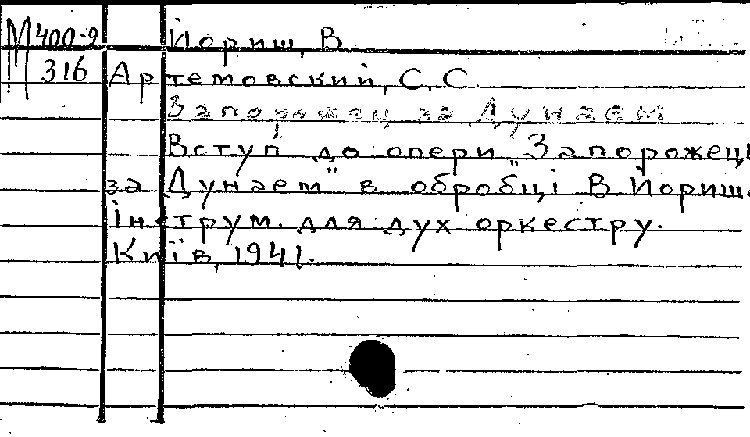 М 400-2 Йориш, В.
316 Артемовский, С. С.
Запорожец за Дунаем
Вступ до опери „Запорожець
за Дунаем" в обробці В. Йориш.
Інструм. для дух оркестру.
Київ, 1941.